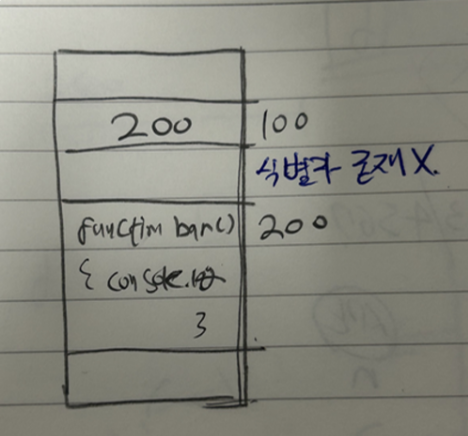 200 100
식별자 존재 X.
function bar() 200
{ console.log
}